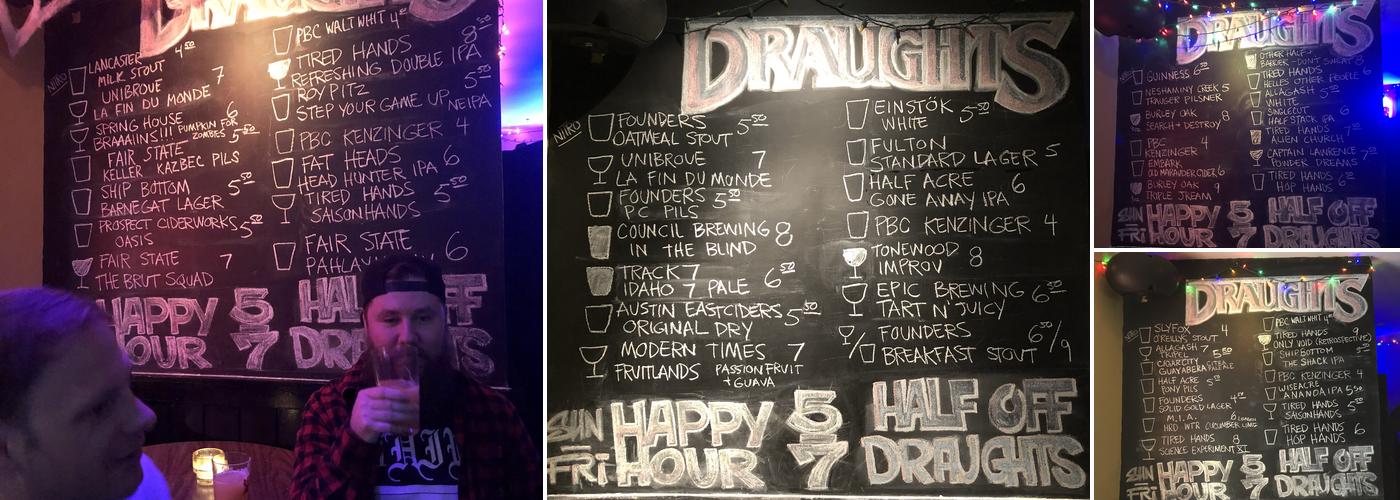 DRAUGHTS
NITRO
LANCASTER 4 50
MILK STOUT
UNIBROUE 7
LA FIN DU MONDE
SPRING HOUSE 6
BRAAAIINS!!! PUMPKIN FOR ZOMBIES 5 50
FAIR STATE
KELLER KAZBEC PILS
SHIP BOTTOM 5 50
BARNEGAT LAGER
PROSPECT CIDERWORKS 5 50
OASIS
FAIR STATE 7
THE BRUT SQUAD
PBC WALT WHIT 4 50
TIRED HANDS 8 50
REFRESHING DOUBLE IPA
ROY PITZ 5 50
STEP YOUR GAME UP NEIPA
PBC KENZINGER 4
FAT HEADS 6
HEAD HUNTER IPA
TIRED HANDS 5 50
SAISONHANDS
FAIR STATE 6
HAPPY 5 HALF OFF
HOUR 7
DRAUGHTS
NITRO
FOUNDERS 5 50
OATMEAL STOUT
UNIBROUE 7
LA FIN DU MONDE
FOUNDERS 5 50
PC PILS
COUNCIL BREWING 8
IN THE BLIND
TRACK 7 6 50
IDAHO 7 PALE
AUSTIN EASTCIDERS 5 50
ORIGINAL DRY
MODERN TIMES 7
FRUITLANDS PASSION FRUIT
+ GUAVA
EINSTÖK 5 50
WHITE
FULTON
STANDARD LAGER 5
HALF ACRE 6
GONE AWAY IPA
PBC KENZINGER 4
TONEWOOD 8
IMPROV
EPIC BREWING 6 50
TART N' JUICY
FOUNDERS 6 50/9
BREAKFAST STOUT
SUN HAPPY 5 HALF OFF
FRI HOUR 7 DRAUGHTS
DRAUGHTS
NITRO
GUINNESS 6 50
NESHAMINY CREEK 5
TRAUGER PILSNER
BURLEY OAK 8
SEARCH + DESTROY
PBC 4
KENZINGER
EMBARK
OLD MARAUDER CIDER 6
BURLEY OAK 9
TRIPLE JREAM
OTHER HALF +
BARRIER - DON'T SWEAT 8
TIRED HANDS
HELLES OTHER PEOPLE 6
ALLAGASH 5 50
WHITE
SINGLECUT 6
HALF STACK IPA
TIRED HANDS 7
ALIEN CHURCH
CAPTAIN LAWRENCE 7
POWDER DREAMS
TIRED HANDS 6
HOP HANDS
SUN HAPPY 5 HALF OFF
FRI HOUR 7 DRAUGHTS
DRAUGHTS
SLYFOX 4
O'REILLY'S STOUT
ALLAGASH 7
TRIPEL 5 50
CIGAR CITY CITRA
GUAYABERA PALE ALE
HALF ACRE 5 50
PONY PILS
FOUNDERS 4 50
SOLID GOLD LAGER
M.I.A. 6
HRD WTR CUCUMBER LIME
TIRED HANDS 8
SCIENCE EXPERIMENT XI
PBC WALT WHIT 4 50
TIRED HANDS 9
ONLY VOID (RETROSPECTIVE)
SHIP BOTTOM
THE SHACK IPA
PBC KENZINGER 4
WISEACRE
ANANDA IPA 5 50
TIRED HANDS 5 50
SAISONHANDS
TIRED HANDS 6
HOP HANDS
SUN HAPPY 5 HALF OFF
FRI HOUR 7 DRAUGHTS